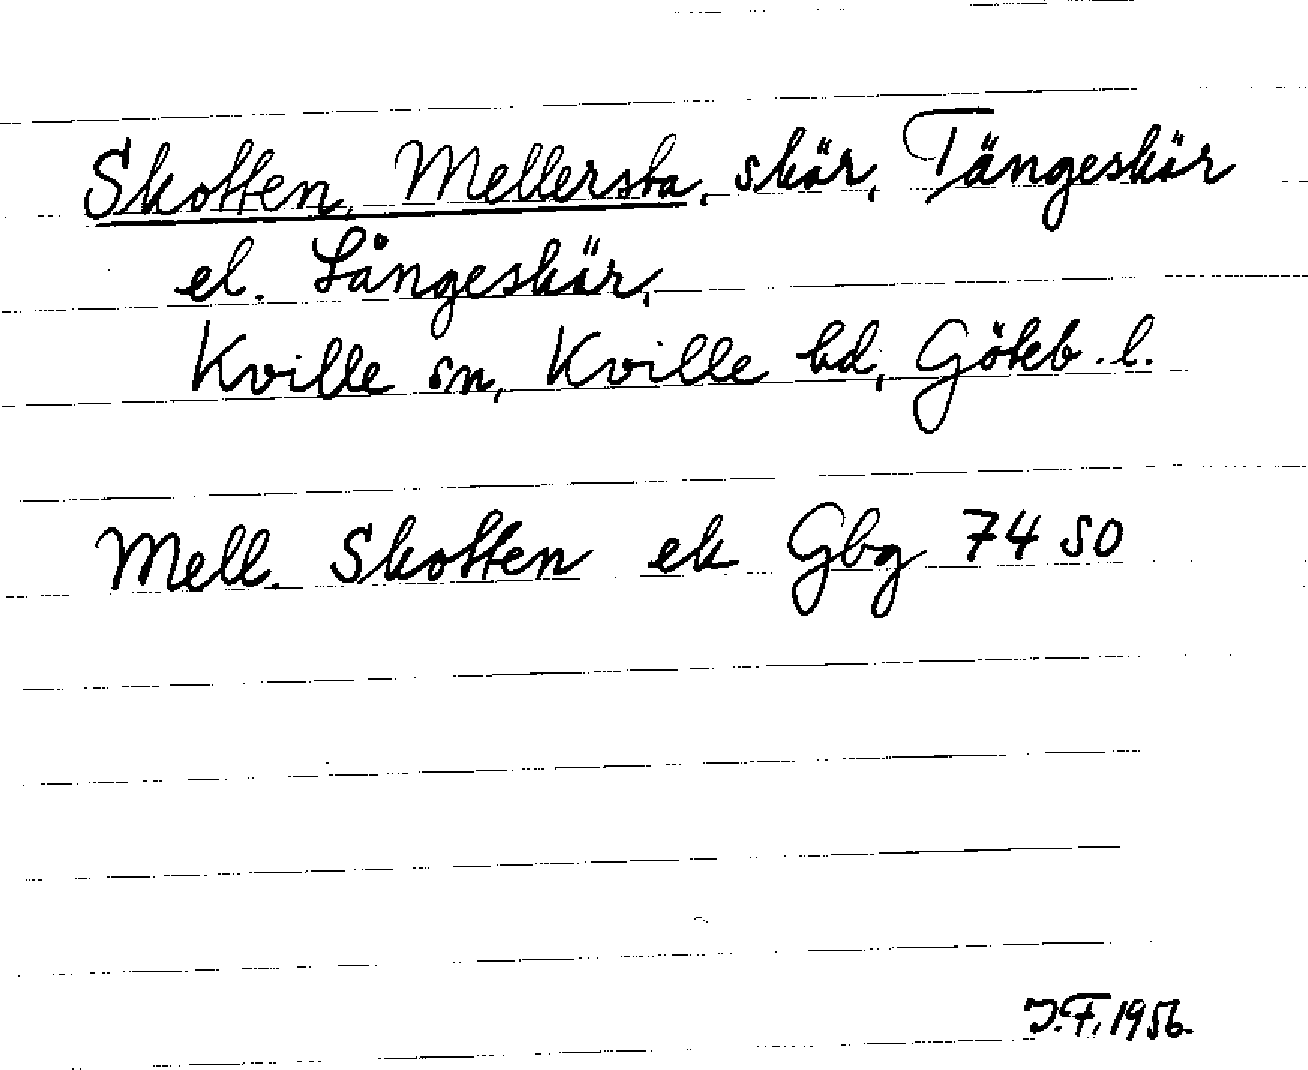 Skotten, Mellersta, skär, Tängeskär
el. Långeskär,
Kville sn, Kville hd, Göteb. l.
Mell. Skotten ek Gbg 74 SO
J.F. 1956.